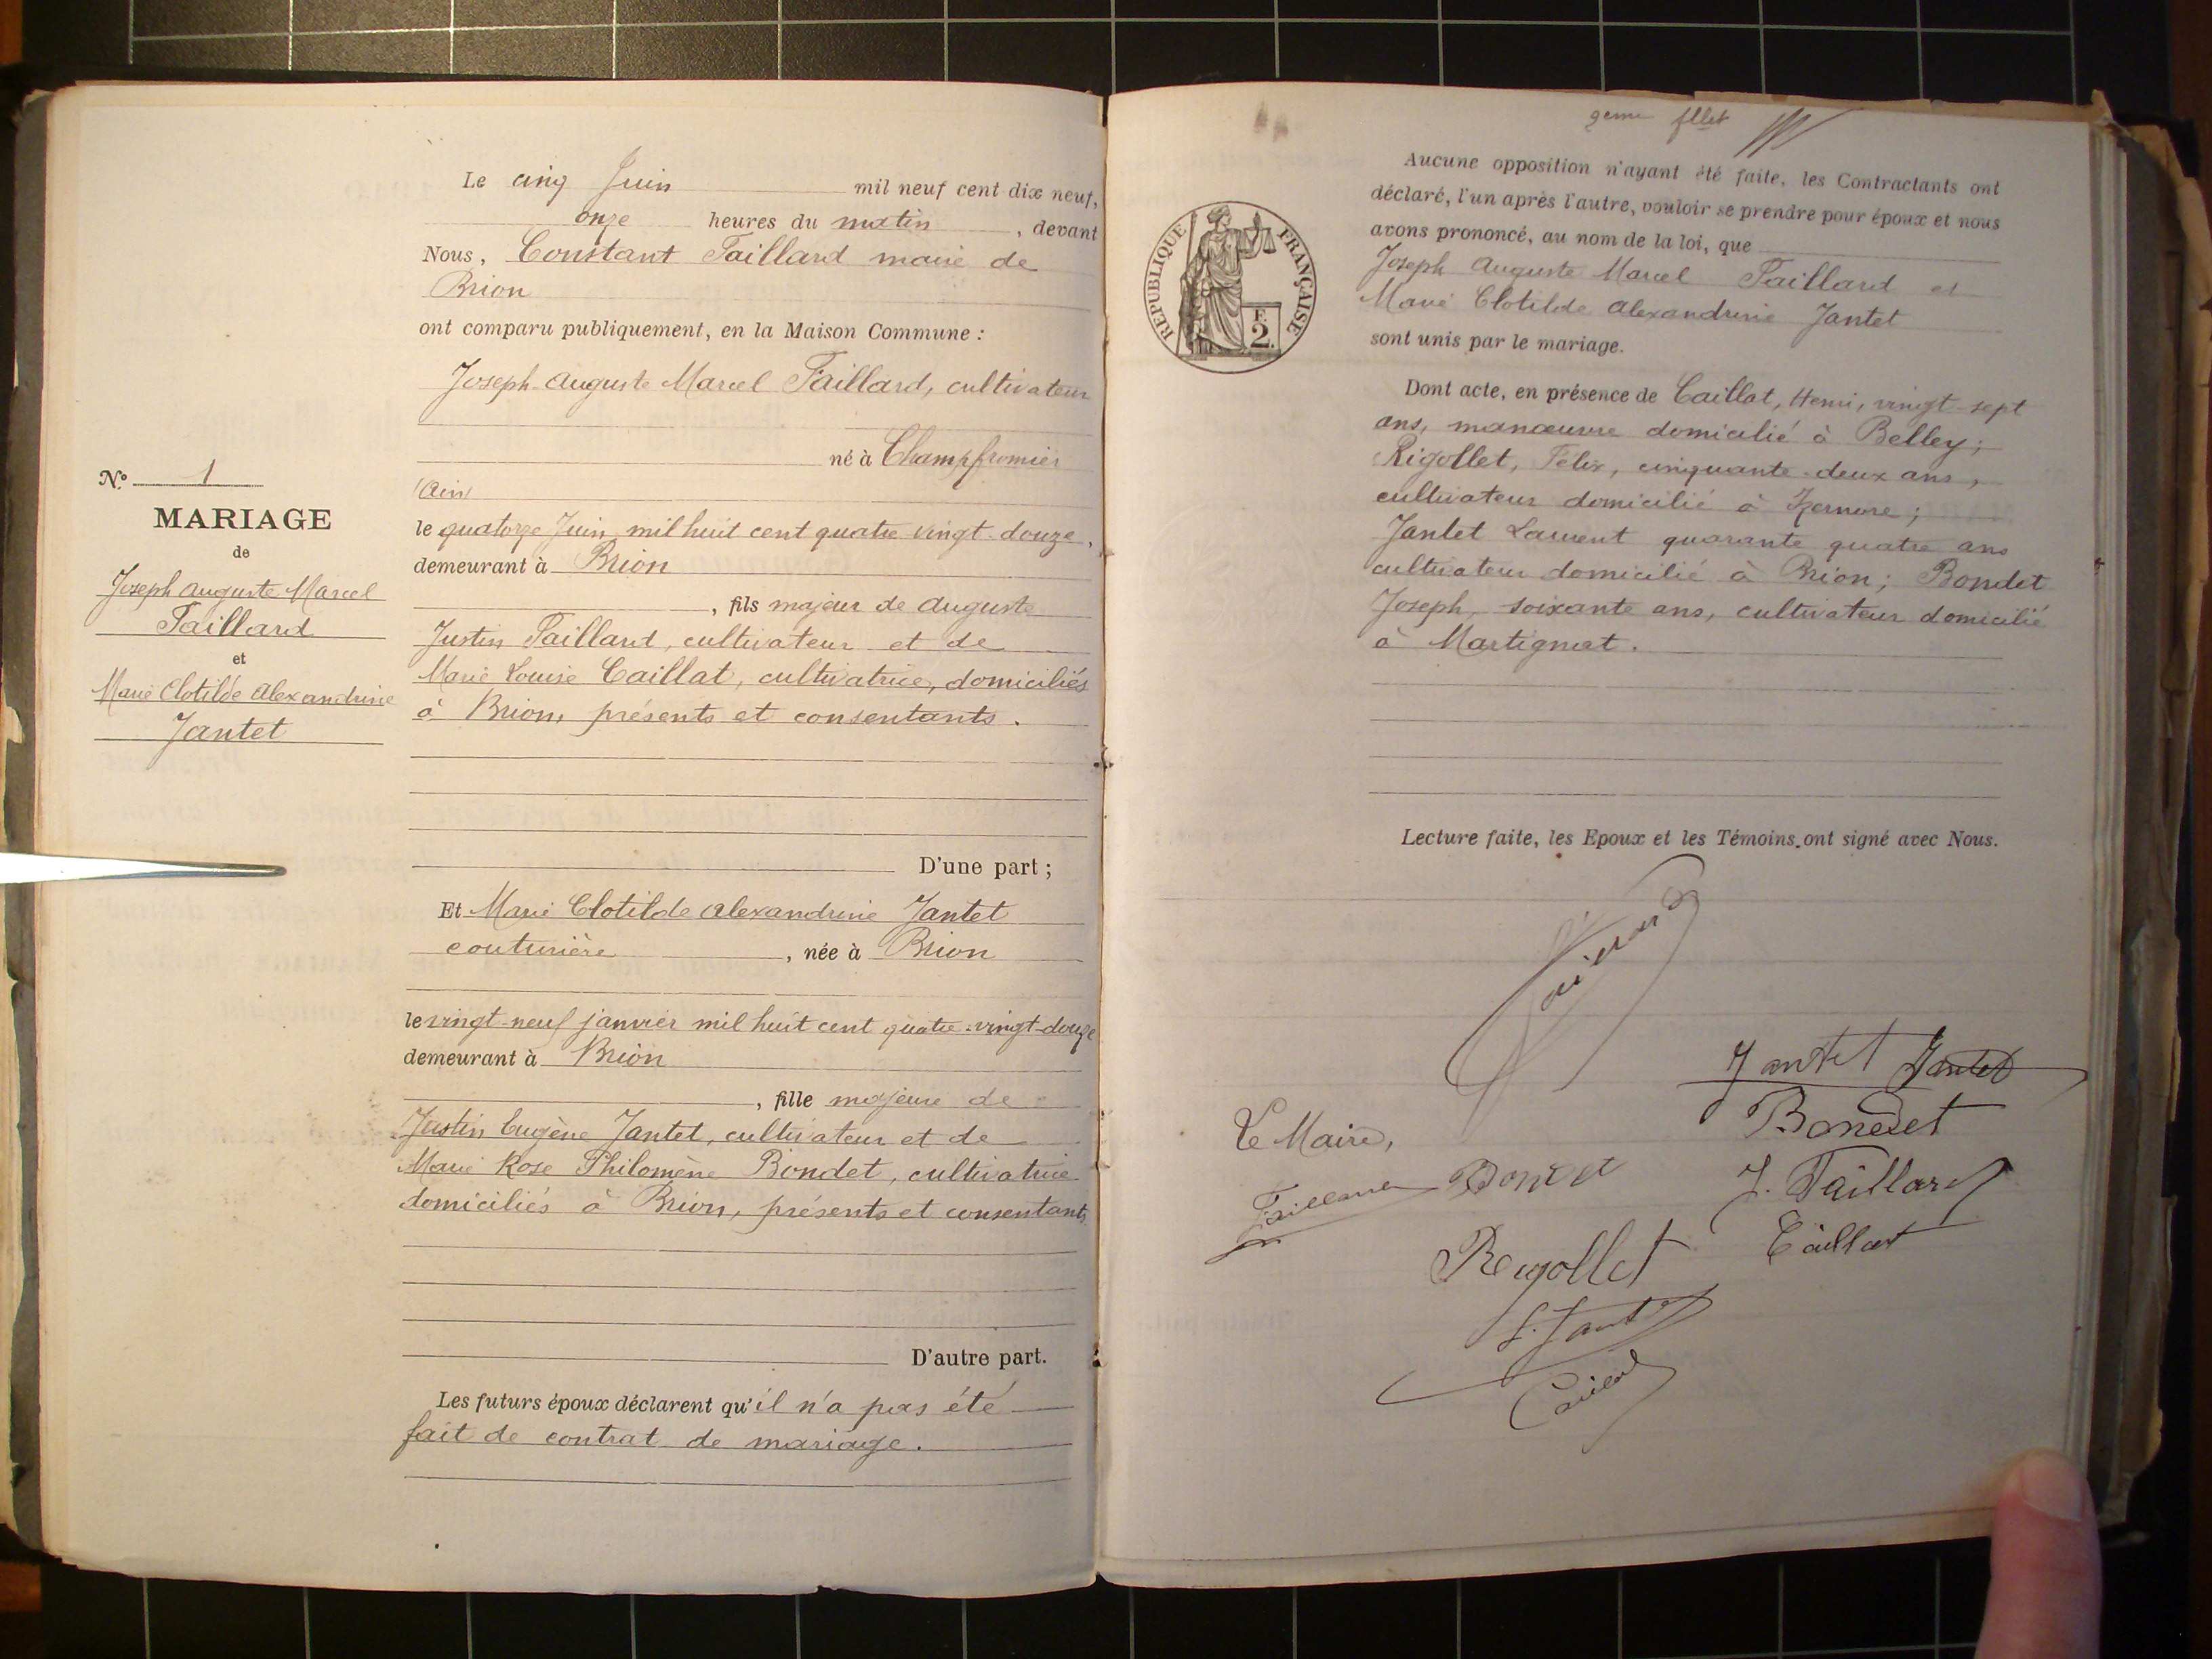 Le cinq Juin mil neuf cent dix neuf,
onze heures du matin, devant
Nous, Constant Taillard maire de
Brion
ont comparu publiquement, en la Maison Commune :
Joseph-Auguste Marcel Taillard, cultivateur
né à Champfromier
(Ain)
le quatorze Juin mil huit cent quatre vingt-douze,
demeurant à Brion
, fils majeur de Auguste
Justin Taillard, cultivateur et de
Marie Louise Caillat, cultivatrice, domiciliés
à Brion, présents et consentants.
D'une part ;
Et Marie Clotilde Alexandrine Jantet
couturière, née à Brion
le vingt-neuf janvier mil huit cent quatre-vingt-douze
demeurant à Brion
, fille majeure de
Justin Eugène Jantet, cultivateur et de
Marie Rose Philomène Bondet, cultivatrice
domiciliés à Brion, présents et consentants
D'autre part.
Les futurs époux déclarent qu'il n'a pas été
fait de contrat de mariage.
No. 1
MARIAGE
de
Joseph Auguste Marcel
Taillard
et
Marie Clotilde Alexandrine
Jantet
9eme fllet
RÉPUBLIQUE FRANÇAISE
F.
2.
Aucune opposition n'ayant été faite, les Contractants ont
déclaré, l'un après l'autre, vouloir se prendre pour époux et nous
avons prononcé, au nom de la loi, que
Joseph Auguste Marcel Taillard et
Marie Clotilde Alexandrine Jantet
sont unis par le mariage.
Dont acte, en présence de Caillat, Henri, vingt-sept
ans, manœuvre domicilié à Belley;
Rigollet, Félix, cinquante-deux ans,
cultivateur domicilié à Izernore;
Jantet Laurent quarante quatre ans
cultivateur domicilié à Brion; Bondet
Joseph, soixante ans, cultivateur domicilié
à Martignat.
Lecture faite, les Epoux et les Témoins ont signé avec Nous.
Jantet Jantet
Bondet
Le Maire,
Taillard Bondet J. Taillard
Rigollet Caillat
L. Jantet